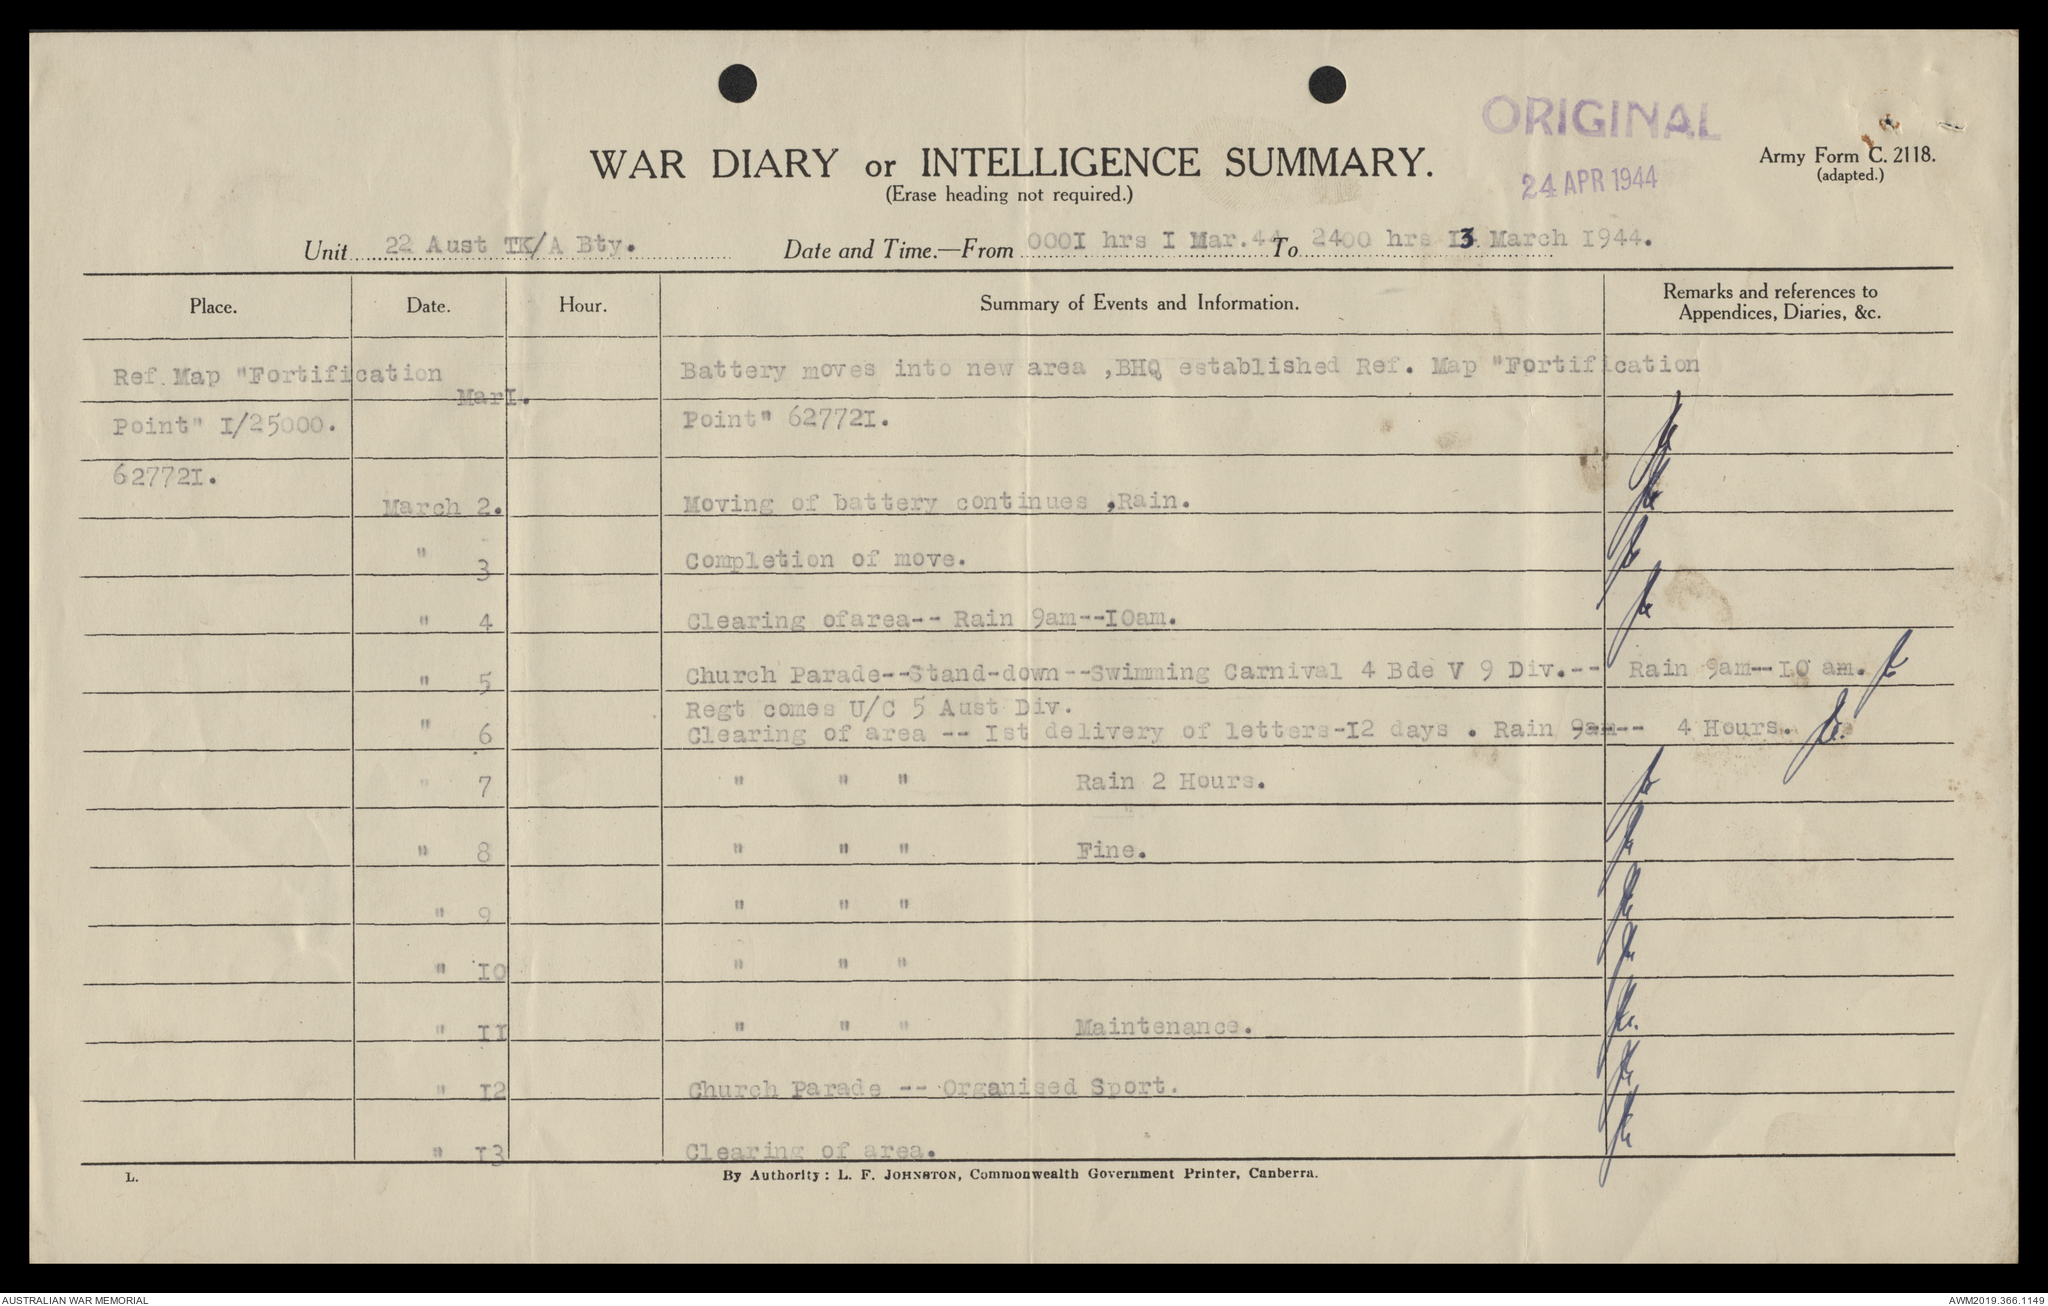 ORIGINAL
24 APR 1944
WAR DIARY or INTELLIGENCE SUMMARY.
(Erase heading not required.)
Army Form C. 2118.
(adapted.)
Unit 22 Aust TK/A Bty. Date and Time.—From 0001 hrs I Mar.44 To 2400 hrs I3 March I944.
Place. Date. Hour. Summary of Events and Information. Remarks and references to
Appendices, Diaries, &c.
Ref.Map "Fortification MarI. Battery moves into new area ,BHQ established Ref. Map "Fortification
Point" I/25000. Point" 62772I.
62772I.
March 2. Moving of battery continues ,Rain.
" 3 Completion of move.
" 4 Clearing ofarea-- Rain 9am--I0am.
" 5 Church Parade--Stand-down--Swimming Carnival 4 Bde V 9 Div.-- Rain 9am--I0 am.
Regt comes U/C 5 Aust Div.
" 6 Clearing of area -- Ist delivery of letters-I2 days . Rain 9am-- 4 Hours.
" 7 " " " Rain 2 Hours.
" 8 " " " Fine.
" 9 " " "
" I0 " " "
" II " " " Maintenance.
" I2 Church Parade -- Organised Sport.
" I3 Clearing of area.
L. By Authority: L. F. JOHNSTON, Commonwealth Government Printer, Canberra.
AUSTRALIAN WAR MEMORIAL AWM2019.366.1149